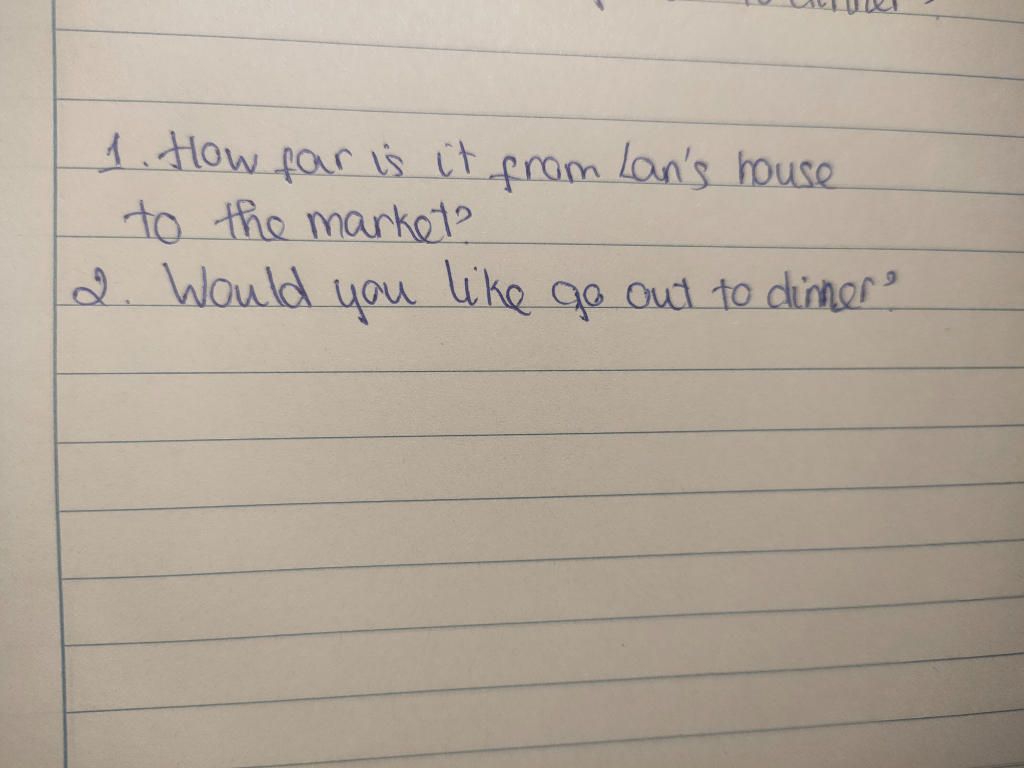 to dinner?
1. How far is it from Lan's house
to the market?
2. Would you like go out to dinner?